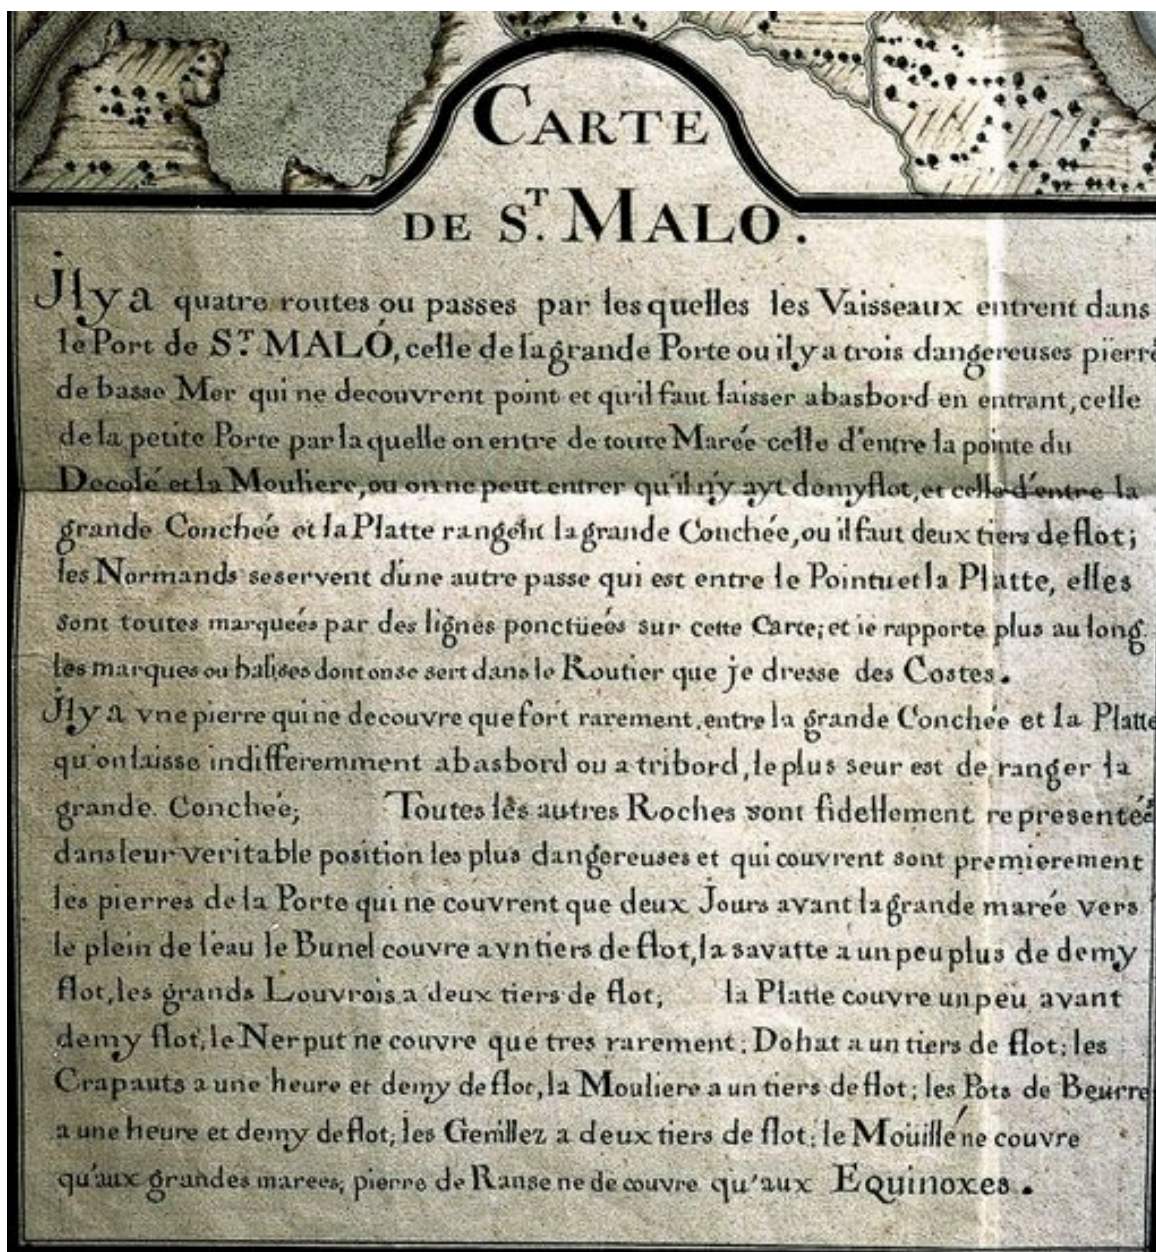 CARTE
DE S.T MALO.
Il y a quatre routes ou passes par les quelles les Vaisseaux entrent dans
le Port de S.T MALÓ, celle de la grande Porte ou il y a trois dangereuses pierre
de basse Mer qui ne decouvrent point et qu'il faut laisser abasbord en entrant, celle
de la petite Porte par laquelle on entre de toute Marée celle d'entre la pointe du
Decolé et la Mouliere, ou on ne peut entrer qu'il n'y ayt demyflot, et celle d'entre la
grande Conchée et la Platte rangent la grande Conchée, ou il faut deux tiers de flot;
les Normands se servent d'une autre passe qui est entre le Pointu et la Platte, elles
sont toutes marqueés par des lignes ponctüeés sur cette Carte; et ie rapporte plus au long
les marques ou balises dont on se sert dans le Routier que je dresse des Costes.
Il y a vne pierre qui ne decouvre que fort rarement, entre la grande Conchée et la Platte
qu'on laisse indifferemment abasbord ou a tribord, le plus seur est de ranger la
grande Conchée; Toutes les autres Roches sont fidellement representéés
dans leur veritable position les plus dangereuses et qui couvrent sont premierement
les pierres de la Porte qui ne couvrent que deux Jours avant la grande mareé vers
le plein de l'eau le Bunel couvre a vn tiers de flot, la savatte a un peu plus de demy
flot, les grands Louvrois a deux tiers de flot; la Platte couvre un peu avant
demy flot, le Nerput ne couvre que tres rarement; Dohat a un tiers de flot; les
Crapauts a une heure et demy de flot, la Mouliere a un tiers de flot; les Pots de Beurre
a une heure et demy de flot, les Genillez a deux tiers de flot; le Moüillé ne couvre
qu'aux grandes marees; pierre de Ranse ne de couvre qu'aux EQUINOXES.